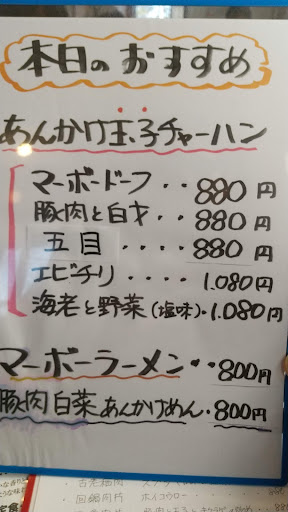 本日のおすすめ
あんかけ玉子チャーハン
マーボードーフ・・880円
豚肉と白才・・880円
五目・・・・880円
エビチリ・・・・1.080円
海老と野菜(塩味)・1.080円
マーボーラーメン・・800円
豚肉白菜あんかけめん・800円
回鍋肉片 ホイコーロー